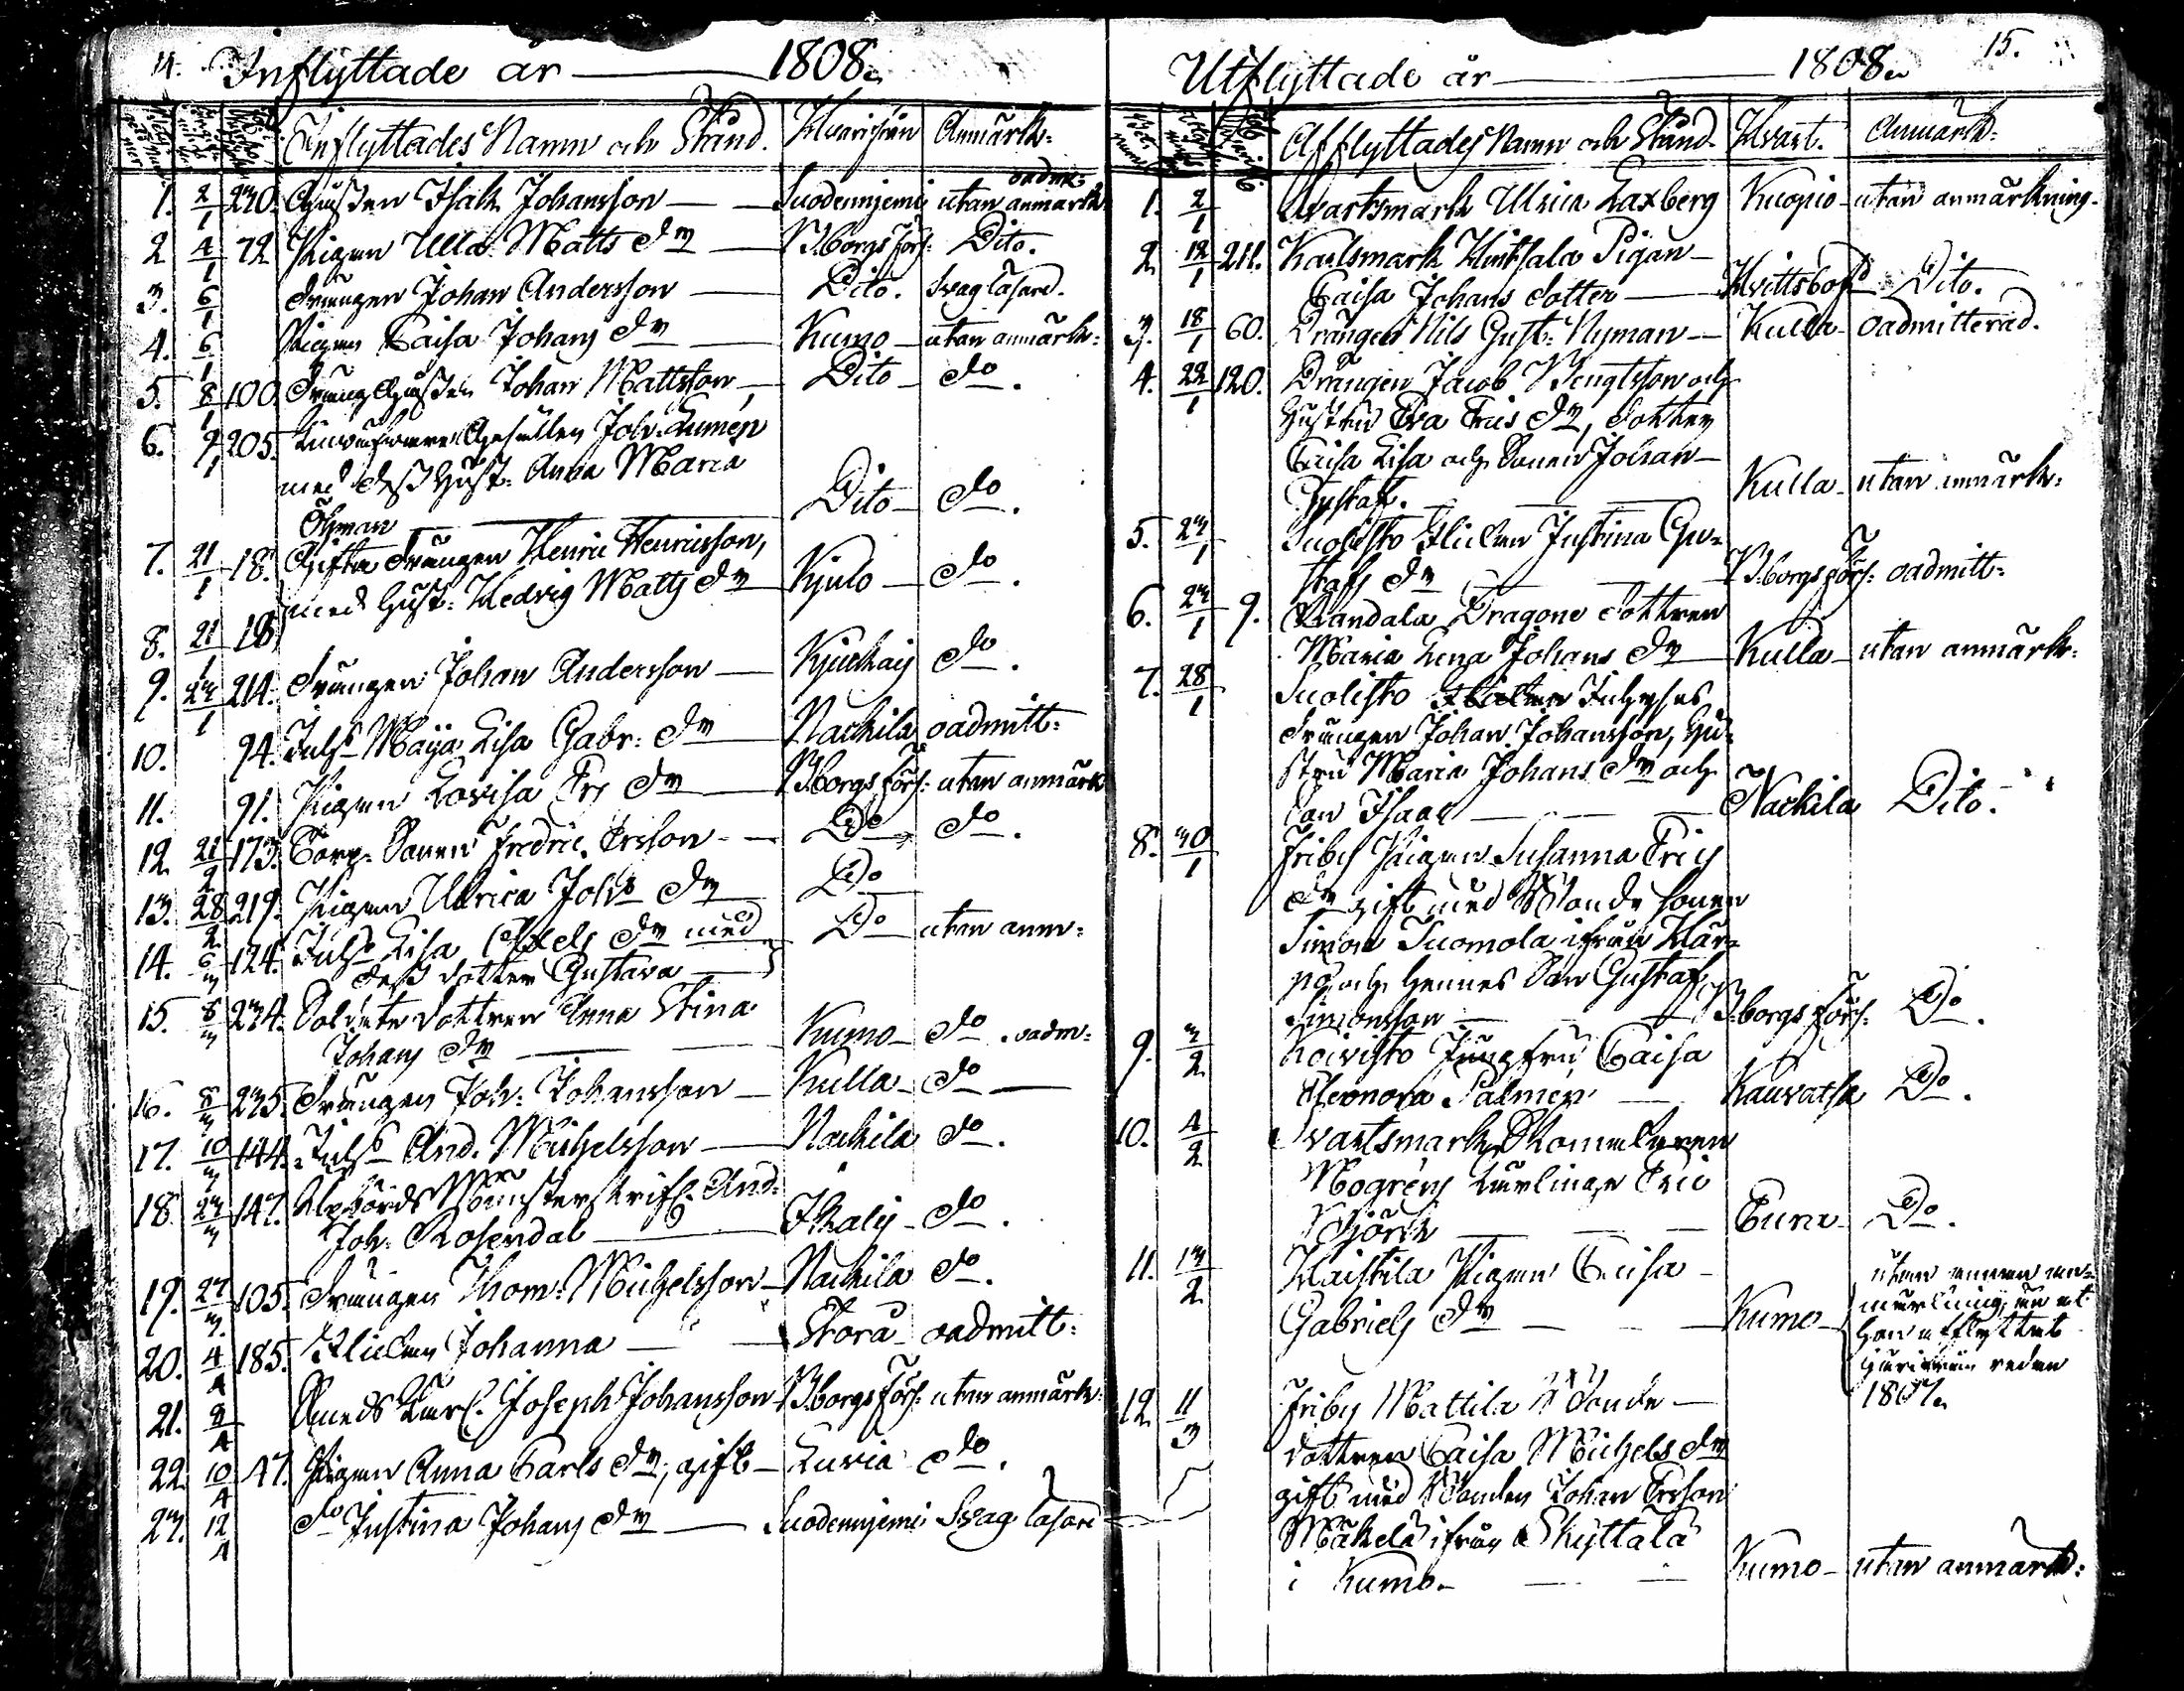 14. Inflyttade år 1808.
Inflyttades Namn och Stånd. Hvarifrån Anmärk:
oadm:
1. 2/1 230. Gusten Isak Johansson Suodenniemi utan anmärk
2 4/1 72 Pigan Ulla Matts dr Biborgs förs: Dito.
3. 6/1 Drängen Johan Andersson Dito. Svag läsare.
4. 6/1 Pigan Caisa Johans dr Kumo utan anmärk:
5. 8/1 100. Johan Mattsson Dito do.
6. 9/1 205. Joh:
med dess Hust: Anna Maria
Öhman Dito do.
7. 21/1 18. Gifta Drängen Henric Henricsson,
med Hust: Hedvig Matts dr Kjulo do.
8. 21/1 18
9. 23/1 214. Drängen Johan Andersson do.
10. 94. Inhs Maija Lisa Gabr: dr Nackila oadmitt:
11. 91. Pigan Lovisa Ers dr Biborgs förs: utan anmärk
12. 21/2 173. Torp. Sonen Fredric Ersson Do do.
13. 28/2 219. Pigan Ulrica Johs dr Do
14. 6/3 124. Inhs Lisa Axels dr med Do utan anm:
dess dotter Gustava
15. 8/3 234. Soldate dottren Anna Stina
Johans dr Kumo do. oadm:
16. 8/3 235. Drängen Joh: Johansson Kulla do
17. 10/3 144. Inhs And. Michelsson Nackila do.
18. 23/3 147. And:
Joh: Rosendal Ikalis do.
19. 27/3 105. Drängen Thom: Michelsson Nackila do.
20. 4/4 185. Flickan Johanna Stora oadmitt:
21. 9/4 Smeds Joseph Johansson Biborgs förs: utan anmärk:
22. 10/4 47. Pigan Anna Carls dr, gift Luvia do.
23. 12/4 do Justina Johans dr Suodenniemi Svag läsare
Utflyttade år 1808. 15.
Afflyttades Namn och Stånd. Hvart. Anmärk:
1. 2/1 Svartsmark Ulrica Laxberg Kuopio utan anmärkning.
2. 12/1 211. Karlsmark Hintsala Pigan
Caisa Johans dotter Dito.
3. 18/1 60. Drängen Nils Gust: Nyman Kulla oadmitterad.
4. 22/1 120. Drängen Jacob Bengtsson och
Hustru Eva Ers dr, dotter
Caisa Lisa och Sonen Johan
Gustaf. Kulla utan anmärk:
5. 23/1 Suolisto Flickan Justina Gu-
stafs dr Biborgs förs: oadmitt:
6. 23/1 9. Randala Dragone dottren
Maria Lena Johans dr Kulla utan anmärk:
7. 28/1 Suolisto Inhyses
Drängen Johan Johansson, Hu-
stru Maria Johans dr och
Son Isaac Nackila Dito.
8. 30/1 Friby Pigan Susanna Erics
dr gift med Bonde sonen
Simon Tuomola ifrån Här-
pö och hennes Son Gustaf
Simonsson Biborgs förs: Do.
9. 3/2 Koivisto Jungfru Caisa
Eleonora Palmen Kauvatsa Do.
10. 4/2 Svartsmark
Mogrens Lärlinge Eric
Björk Eura Do.
11. 13/2 Haistila Pigan Caisa
Gabriels dr Kumo
utan annan an-
märkning, än at
hon afflyttat
redan
1807.
12. 11/3 Friby Mattila Bonde
dottren Caisa Michels dr
gift med Bonden Johan Ersson
Mäkelä ifrån Skyttälä
i Kumo. Kumo utan anmärk: